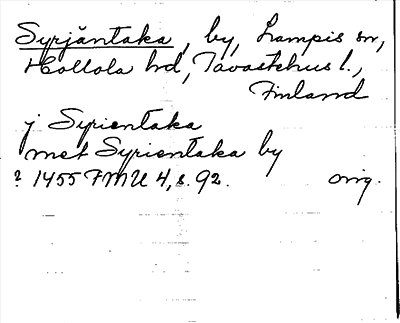 Syrjäntaka, by, Lampis sn,
Hollola hd, Tavastehus l.,
Finland
j Syrientaka
met Syrientaka by
? 1455 FMU 4, s. 92. orig.